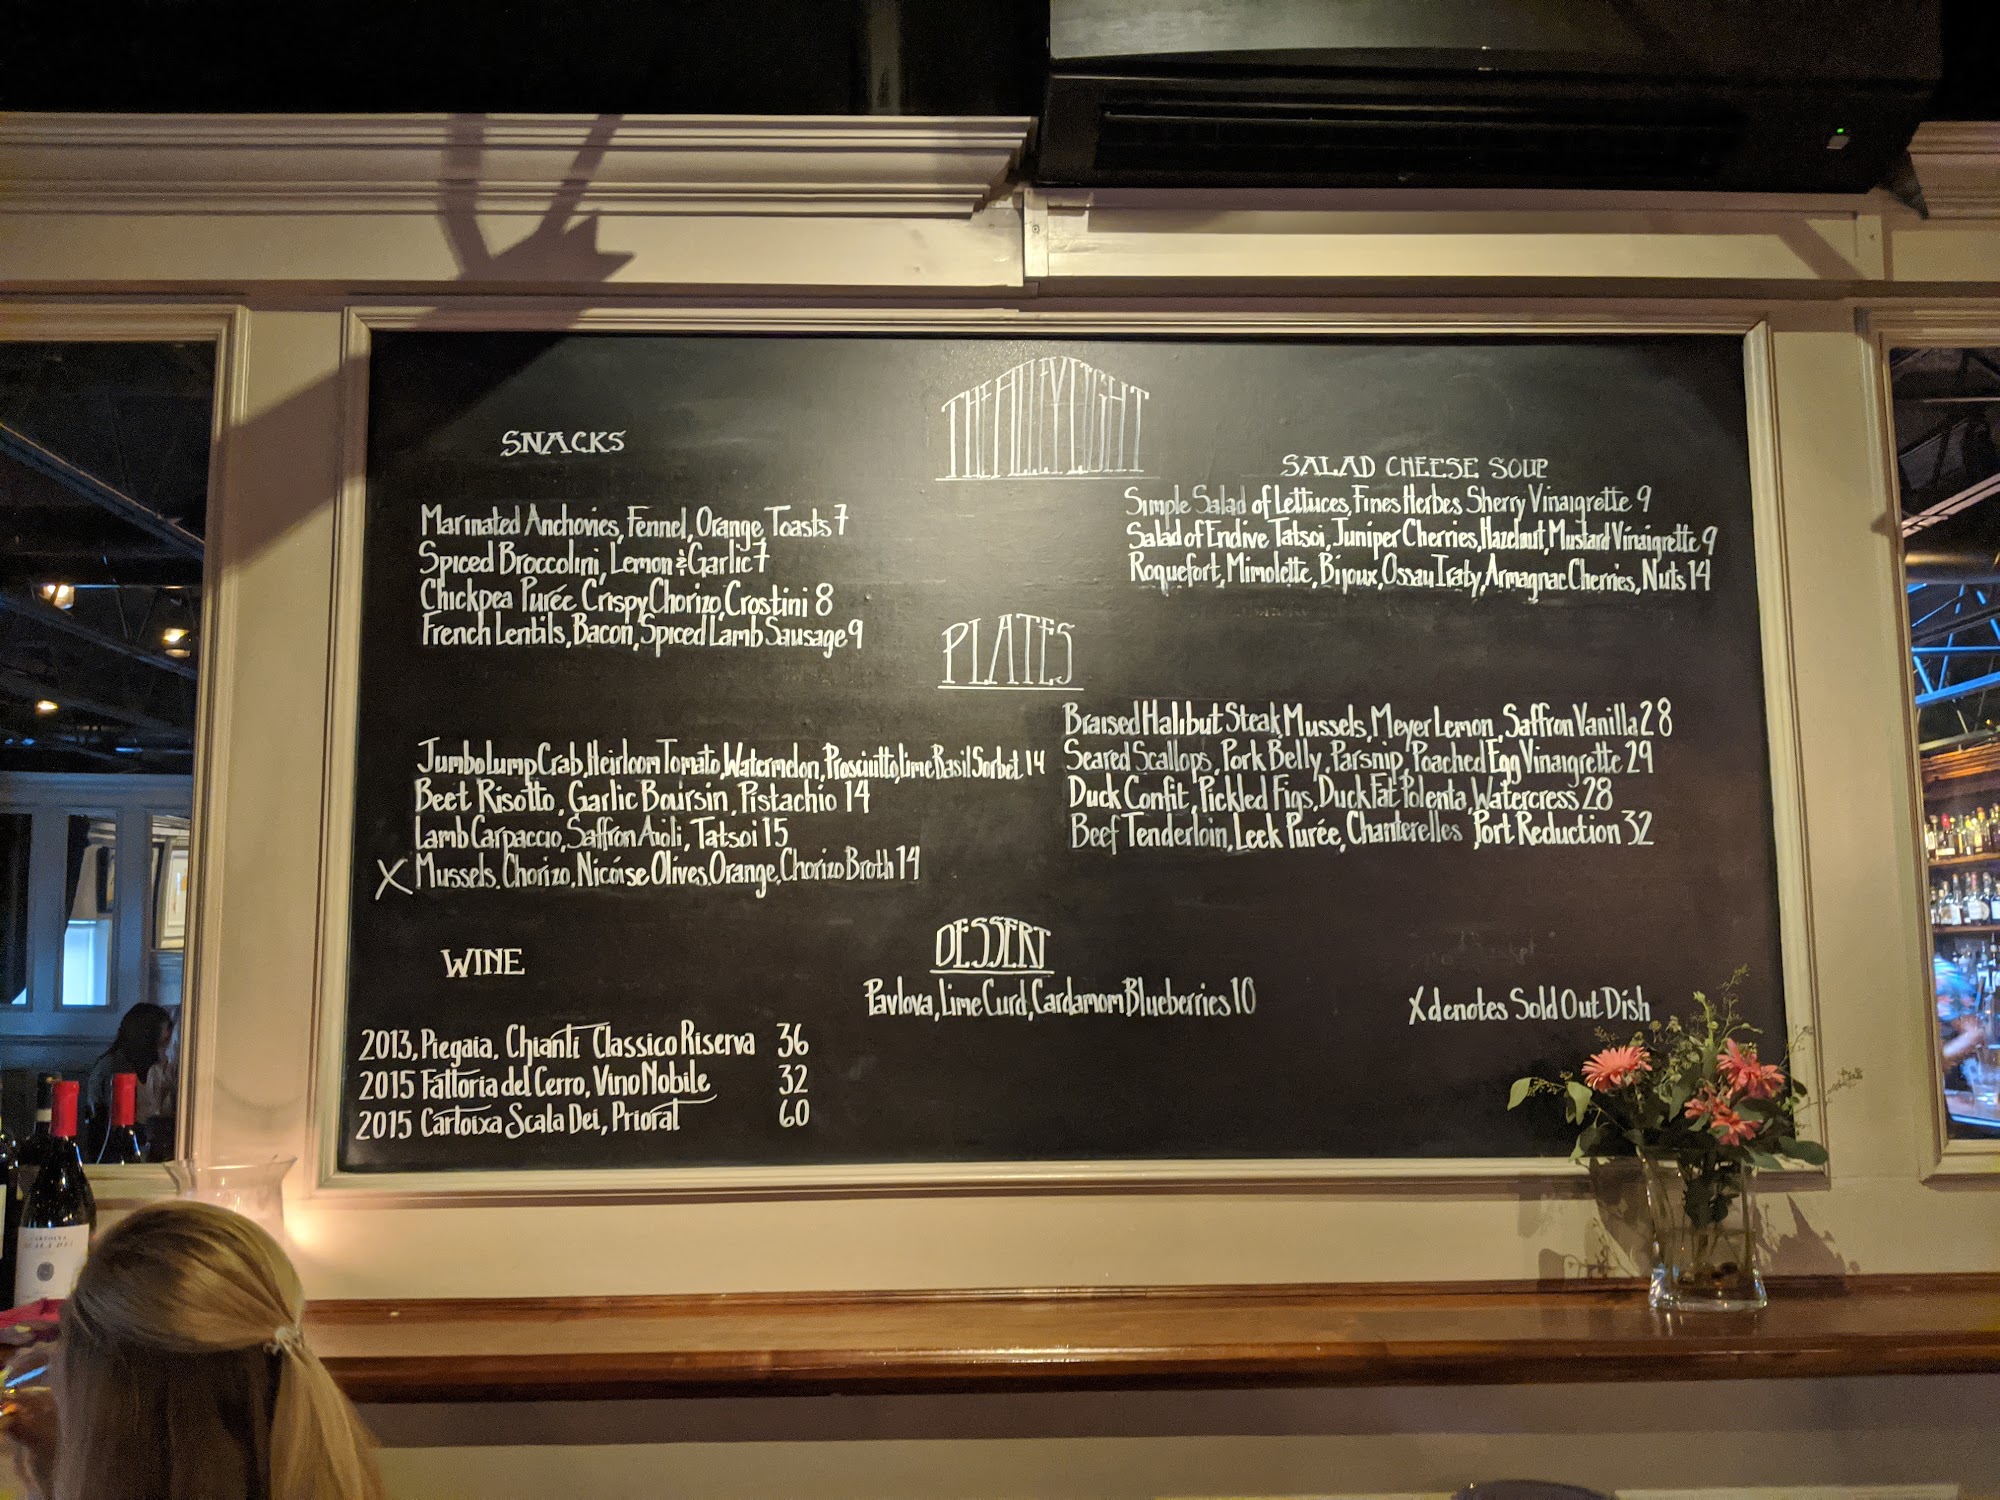 THE ALLEY LIGHT
SNACKS
Marinated Anchovies, Fennel, Orange, Toasts 7
Spiced Broccolini, Lemon & Garlic 7
Chickpea Purée, Crispy Chorizo, Crostini 8
French Lentils, Bacon, Spiced Lamb Sausage 9
SALAD CHEESE SOUP
Simple Salad of Lettuces, Fines Herbes Sherry Vinaigrette 9
Salad of Endive Tatsoi, Juniper Cherries, Hazelnut, Mustard Vinaigrette 9
Roquefort, Mimolette, Bijoux, Ossau Iraty, Armagnac Cherries, Nuts 14
PLATES
Jumbo Lump Crab, Heirloom Tomato, Watermelon, Prosciutto, Lime Basil Sorbet 14
Beet Risotto, Garlic Boursin, Pistachio 14
Lamb Carpaccio, Saffron Aioli, Tatsoi 15
X Mussels, Chorizo, Nicóise Olives, Orange, Chorizo Broth 14
Braised Halibut Steak, Mussels, Meyer Lemon, Saffron Vanilla 28
Seared Scallops, Pork Belly, Parsnip, Poached Egg Vinaigrette 29
Duck Confit, Pickled Figs, Duck Fat Polenta, Watercress 28
Beef Tenderloin, Leek Purée, Chanterelles, Port Reduction 32
WINE
2013, Piegaia, Chianti Classico Riserva 36
2015 Fattoria del Cerro, Vino Nobile 32
2015 Cartoixa Scala Dei, Priorat 60
DESSERT
Pavlova, Lime Curd, Cardamom Blueberries 10
X denotes Sold Out Dish
SCALA DEI